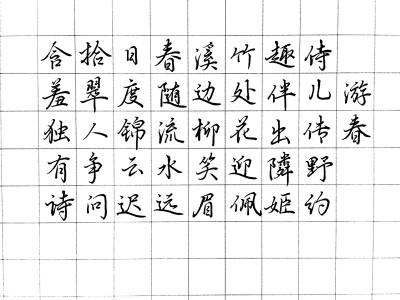 游春
侍儿传野约
趣伴出隣姬
竹处花迎佩
溪边柳笑眉
春随流水远
日度锦云迟
拾翠人争问
含羞独有诗